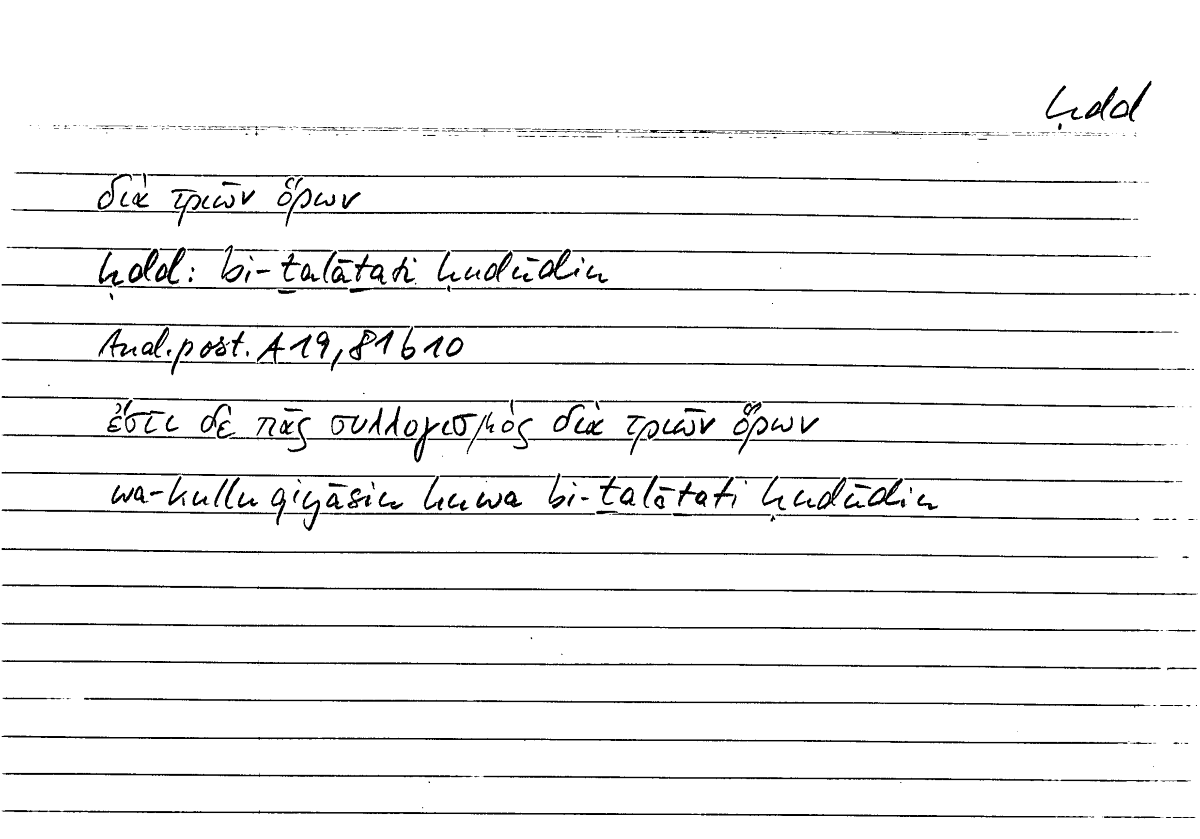 ḥdd
διὰ τριῶν ὅρων
ḥdd: bi-ṯalāṯati ḥudūdin
Anal.post. A19,81b10
ἔστι δὲ πᾶς συλλογισμὸς διὰ τριῶν ὅρων
wa-kullu qiyāsin huwa bi-ṯalāṯati ḥudūdin